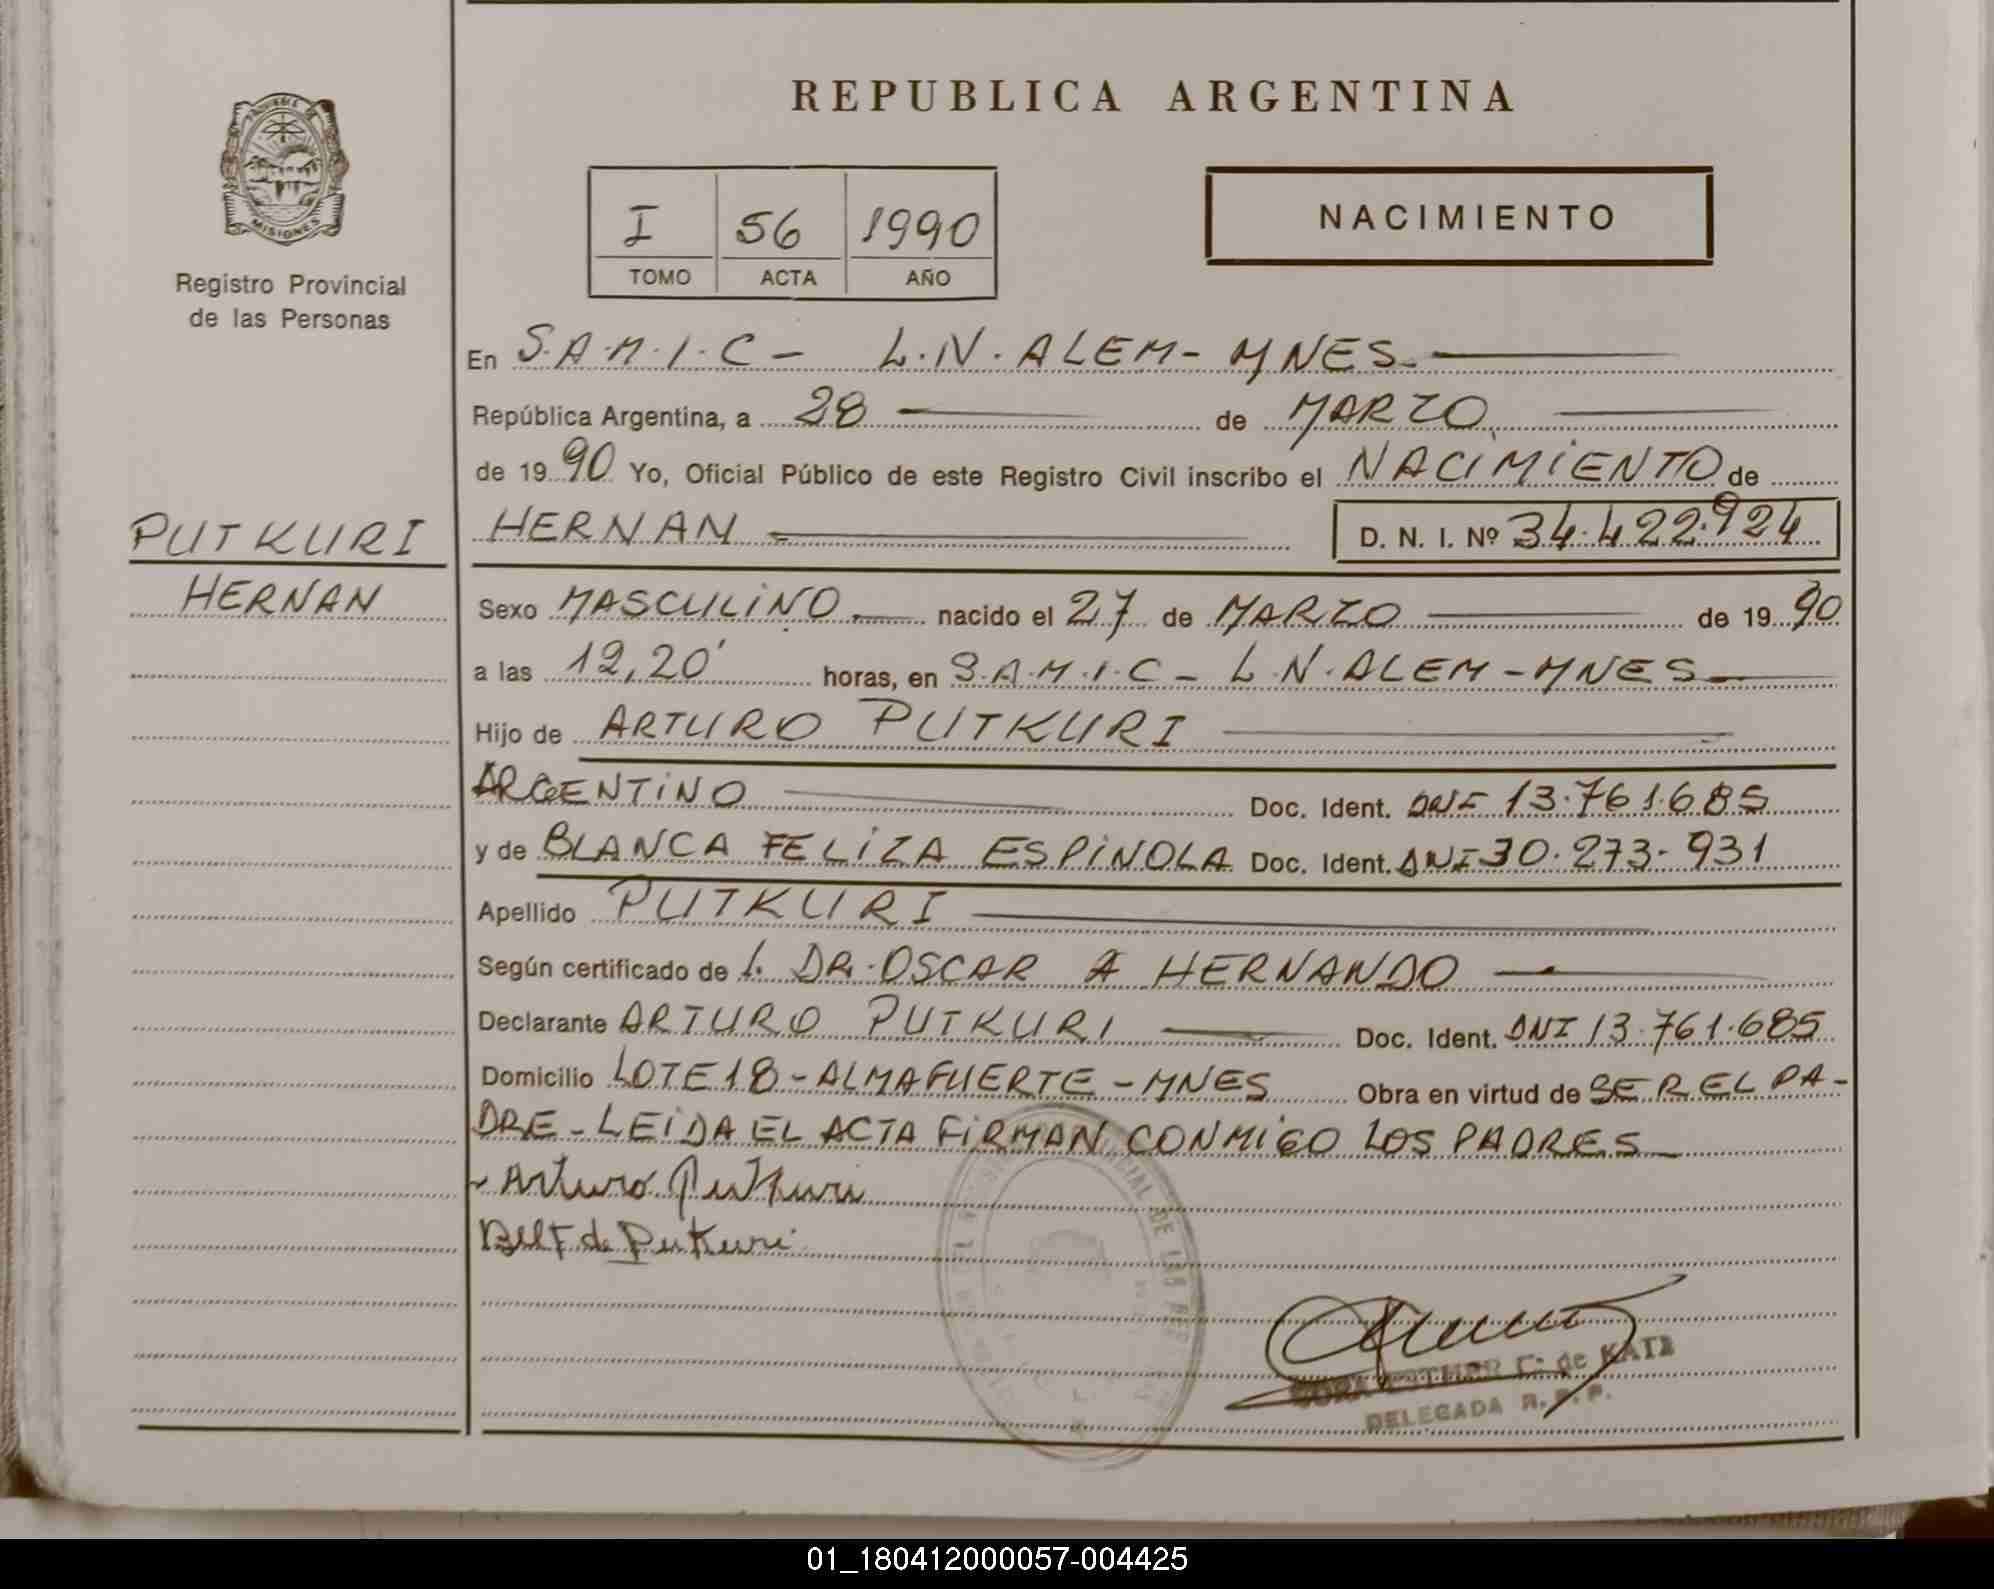 REPUBLICA ARGENTINA
MISIONES
Registro Provincial
de las Personas
I 56 1990
TOMO ACTA AÑO
NACIMIENTO
En S.A.M.I.C - L.N. ALEM - MNES.
República Argentina, a 28 de MARZO
de 1990 Yo, Oficial Público de este Registro Civil inscribo el NACIMIENTO de
PUTKURI
HERNAN
HERNAN D. N. I. Nº 34.422.924
Sexo MASCULINO nacido el 27 de MARZO de 1990
a las 12,20' horas, en S.A.M.I.C - L.N. ALEM - MNES
Hijo de ARTURO PUTKURI
ARGENTINO Doc. Ident. DNI 13.761.685
y de BLANCA FELIZA ESPINOLA Doc. Ident. DNI 30.273.931
Apellido PUTKURI
Según certificado de l. DR. OSCAR A HERNANDO
Declarante ARTURO PUTKURI Doc. Ident. DNI 13.761.685
Domicilio LOTE 18 - ALMAFUERTE - MNES Obra en virtud de SER EL PA-
DRE - LEIDA EL ACTA FIRMAN CONMIGO LOS PADRES
Arturo Putkuri
F de Putkuri
DE LAS
de KATZ
DELEGADA R. P. P.
01_180412000057-004425